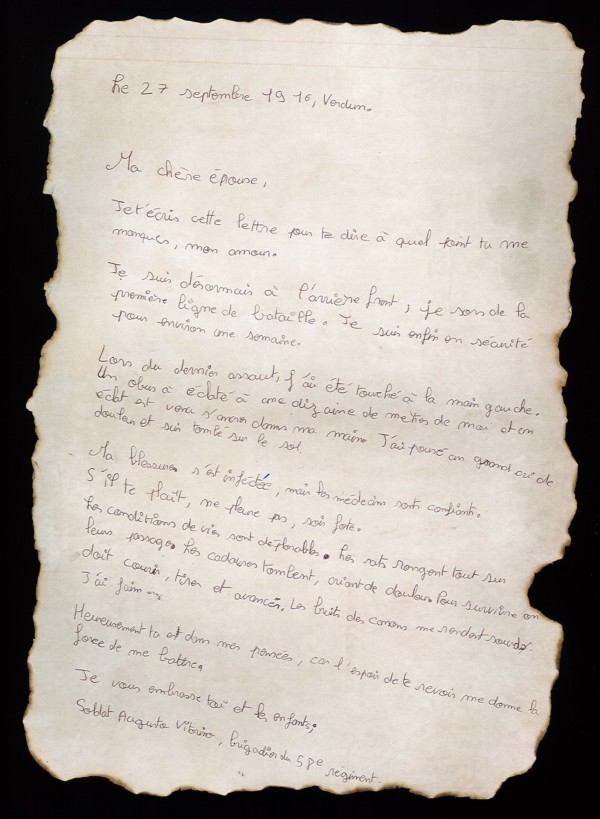 Le 27 septembre 1916, Verdun.
Ma chère épouse,
Je t'écris cette lettre pour te dire à quel point tu me
manques, mon amour.
Je suis désormais à l'arrière front, je sors de la
première ligne de bataille. Je suis enfin en sécurité
pour environ une semaine.
Lors du dernier assaut, j'ai été touché à la main gauche.
Un obus à éclaté à une dizaine de mètres de moi et un
éclat est venu s'ancrer dans ma main. J'ai poussé un grand cri de
douleur et suis tombé sur le sol.
Ma blessure s'est infectée, mais les médecins sont confiants.
S'il te plaît, ne pleure pas, sois forte.
Les conditions de vies sont déplorables. Les rats rongent tout sur
leurs passage. Les cadavres tombent, criant de douleur. Pour survivre on
doit courir, tirer et avancer. Les bruits des canons me rendent sourds.
J'ai faim...
Heureusement tu et dans mes pensées, car l'espoir de te revoir me donne la
force de me battre.
Je vous embrasse toi et les enfants,
Soldat Auguste, brigadier du régiment.